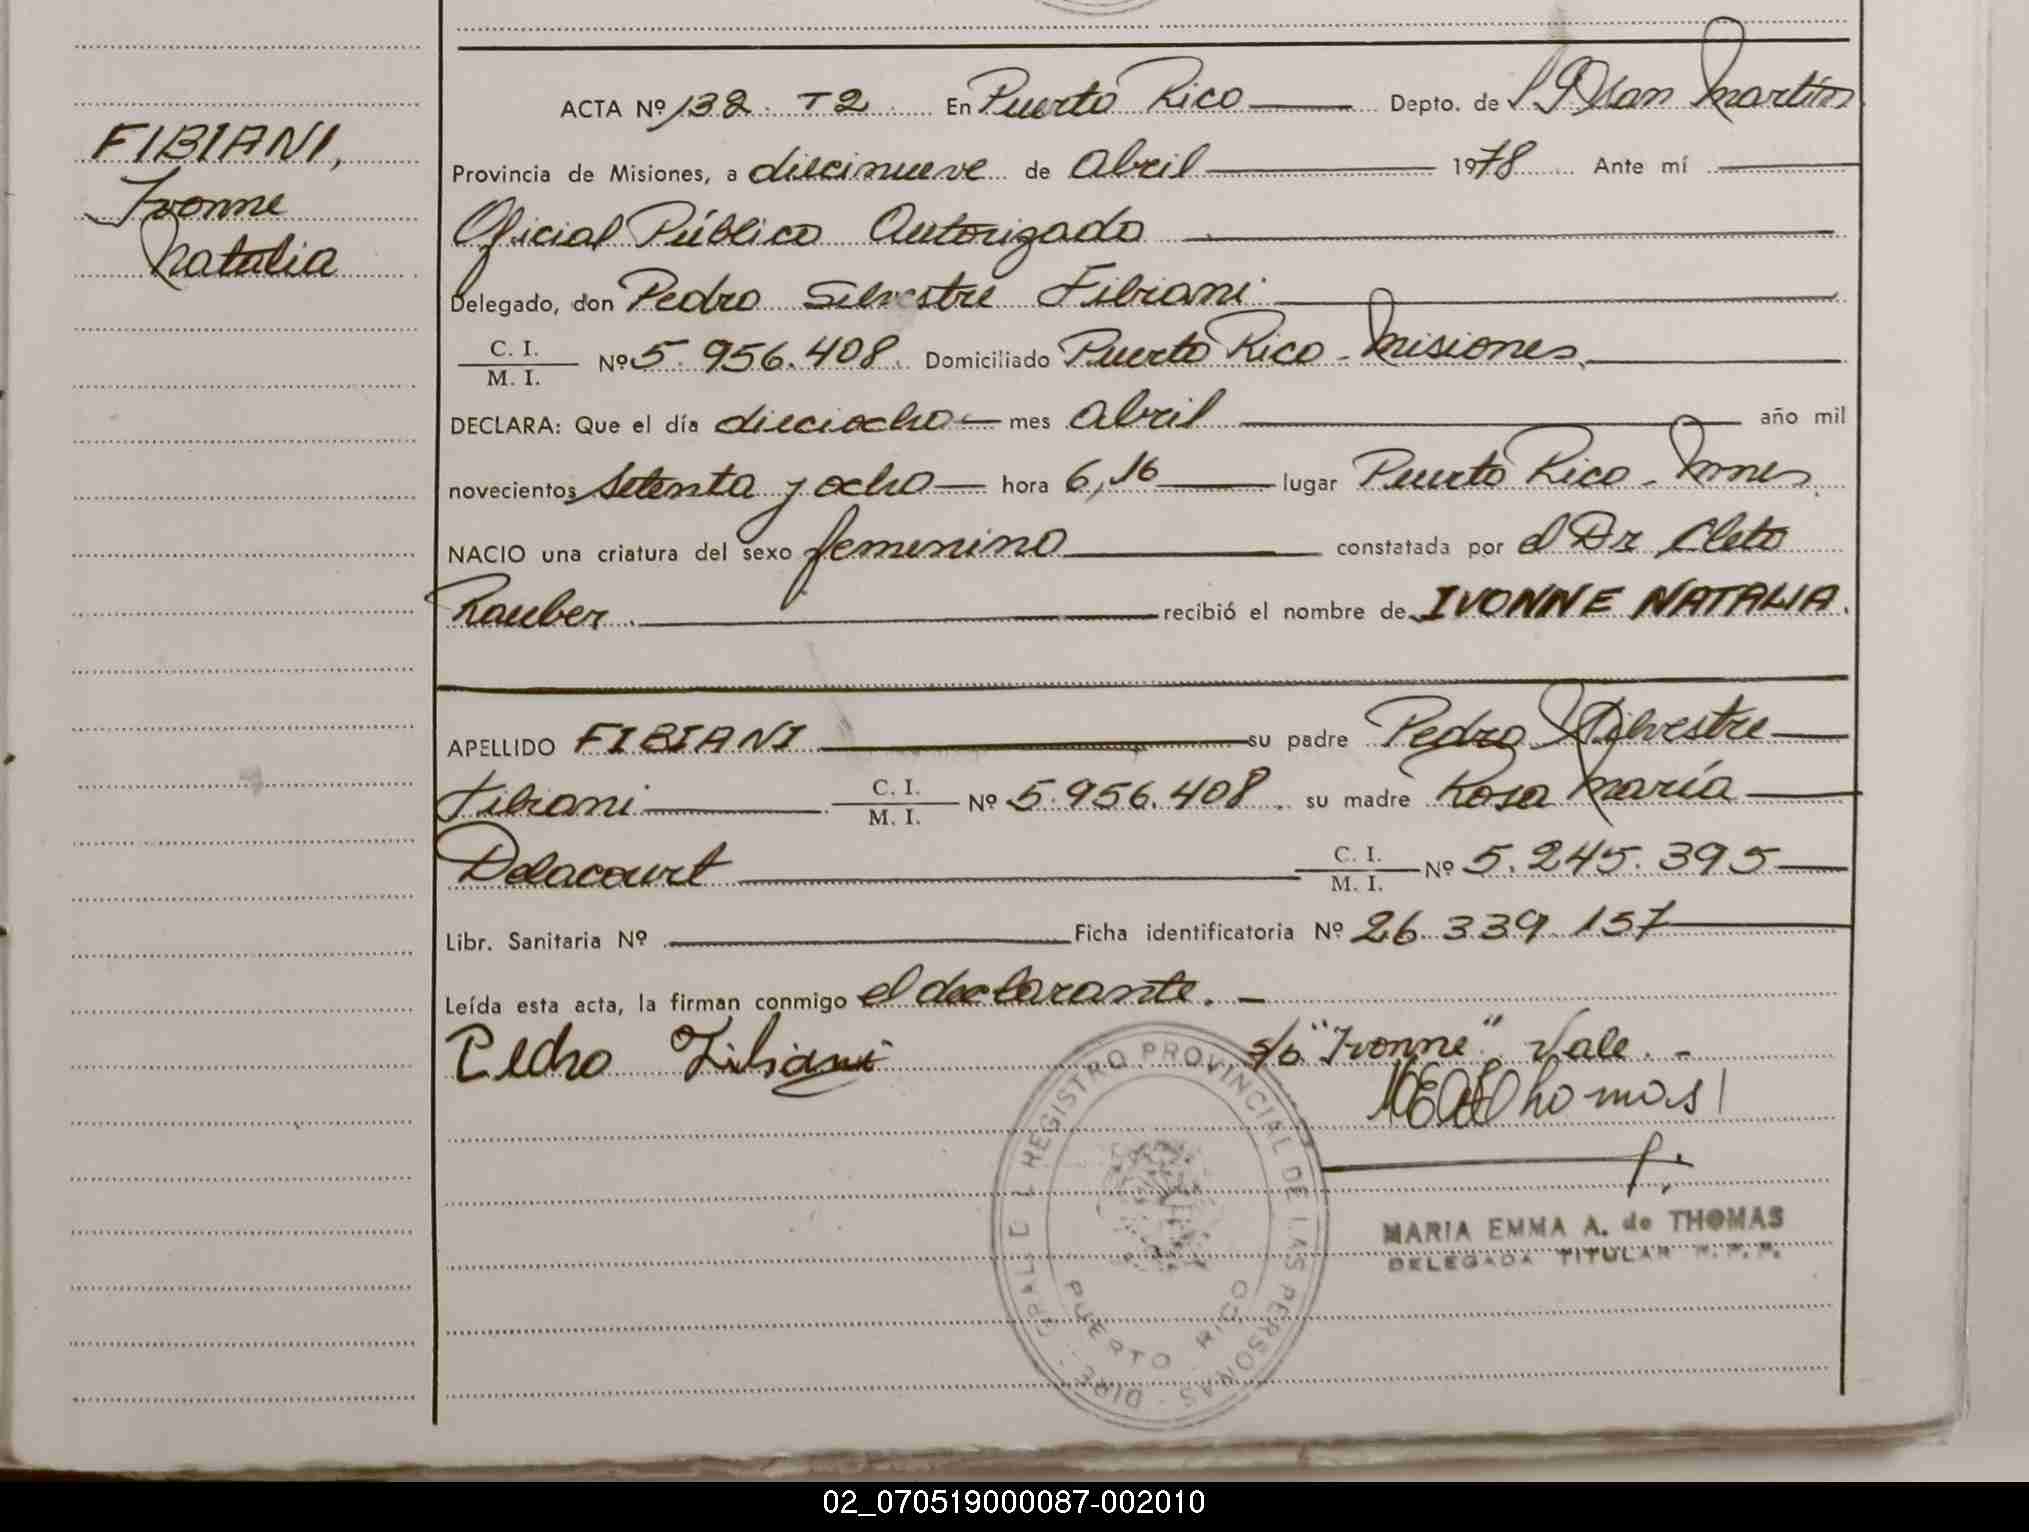 FIBIANI,
Ivonne
Natalia
ACTA Nº 138 T2 En Puerto Rico Depto. de L. G. San Martín
Provincia de Misiones, a diecinueve de Abril 1978 Ante mí
Oficial Público Autorizado
Delegado, don Pedro Silvestre Fibiani
C. I.
M. I. Nº 5.956.408 Domiciliado Puerto Rico - Misiones
DECLARA: Que el día dieciocho mes Abril año mil
novecientos setenta y ocho hora 6,16 lugar Puerto Rico - Mnes.
NACIO una criatura del sexo femenino constatada por el Dr Cleto
Rauber recibió el nombre de IVONNE NATALIA.
APELLIDO FIBIANI su padre Pedro Silvestre
Fibiani C. I.
M. I. Nº 5.956.408 su madre Rosa María
Delacourt C. I.
M. I. Nº 5.245.395
Libr. Sanitaria Nº Ficha identificatoria Nº 26 339 157
Leída esta acta, la firman conmigo el declarante. -
Pedro Fibiani s/b "Ivonne" Vale. -
Thomas
MARIA EMMA A. de THOMAS
DELEGADA TITULAR
DIRE. GRAL. DEL REGISTRO PROVINCIAL DE LAS PERSONAS
PUERTO RICO
02_070519000087-002010